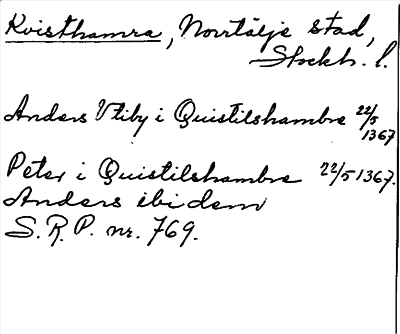 Kvisthamra, Norrtälje stad,
Stockh. l.
Anders Utiby i Quistilshambre 22/5
1367
Peter i Quistilshambre 22/5 1367.
Anders ibidem
S.R.P. nr. 769.